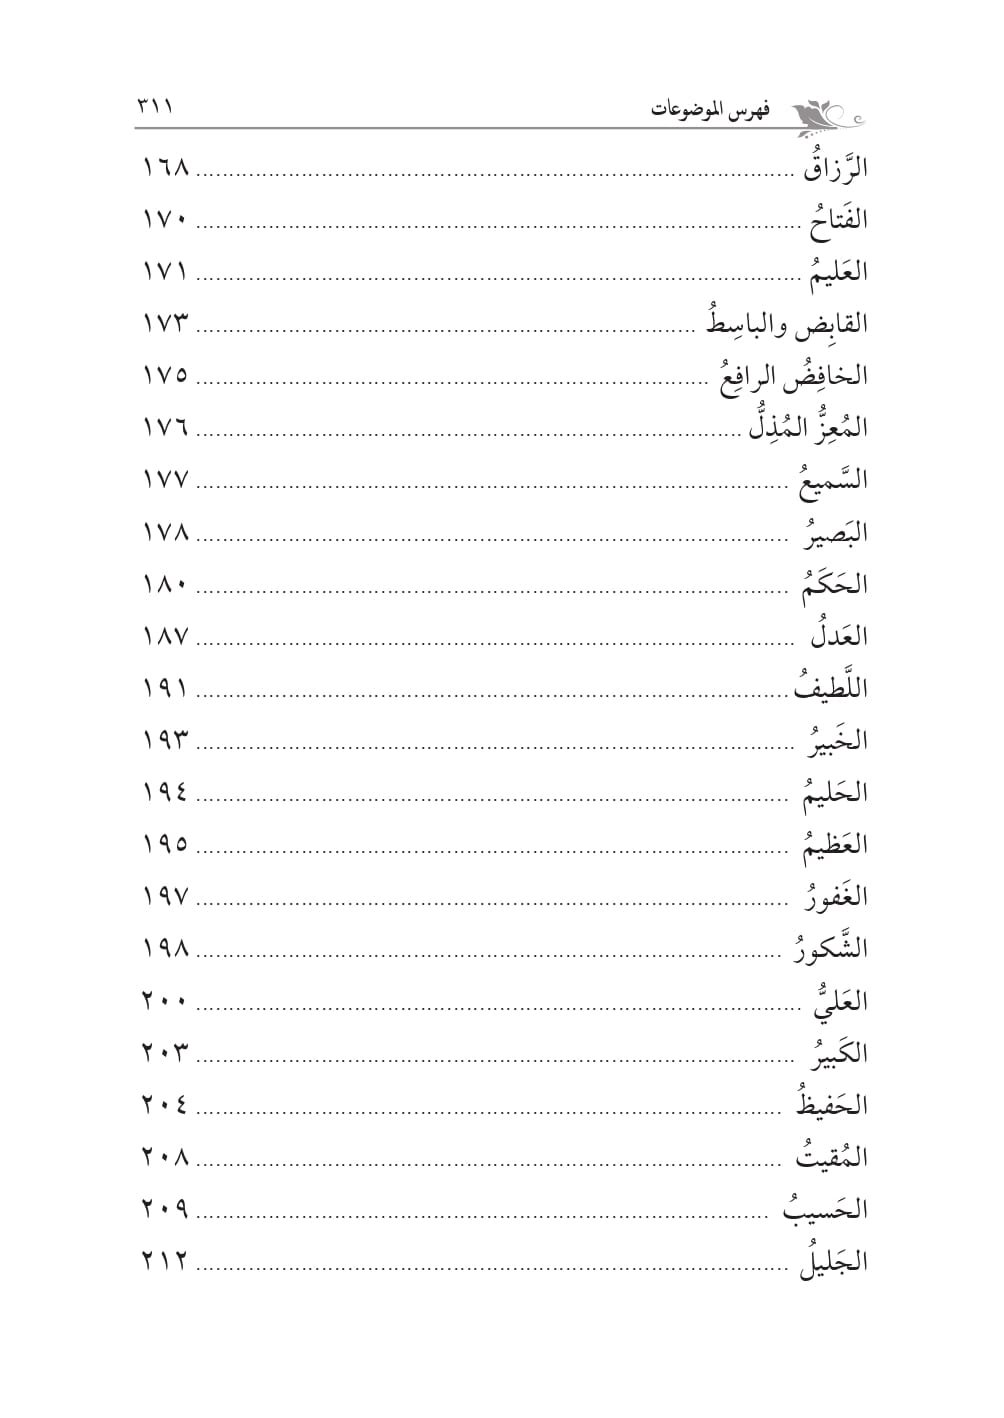 فهرس الموضوعات ٣١١
الرَّزاقُ ........................................ ١٦٨
الفَتاحُ ........................................ ١٧٠
العَليمُ ........................................ ١٧١
القابِض والباسِطُ ........................................ ١٧٣
الخافِضُ الرافِعُ ........................................ ١٧٥
المُعِزُّ المُذِلُّ ........................................ ١٧٦
السَّميعُ ........................................ ١٧٧
البَصيرُ ........................................ ١٧٨
الحَكَمُ ........................................ ١٨٠
العَدلُ ........................................ ١٨٧
اللَّطيفُ ........................................ ١٩١
الخَبيرُ ........................................ ١٩٣
الحَليمُ ........................................ ١٩٤
العَظيمُ ........................................ ١٩٥
الغَفورُ ........................................ ١٩٧
الشَّكورُ ........................................ ١٩٨
العَليُّ ........................................ ٢٠٠
الكَبيرُ ........................................ ٢٠٣
الحَفيظُ ........................................ ٢٠٤
المُقيتُ ........................................ ٢٠٨
الحَسيبُ ........................................ ٢٠٩
الجَليلُ ........................................ ٢١٢